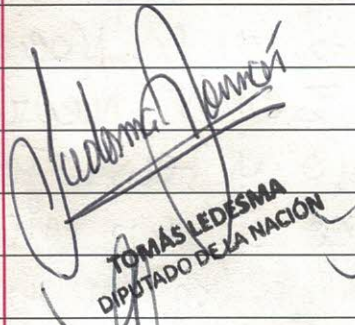 Ledesma Tomás
TOMÁS LEDESMA
DIPUTADO DE LA NACIÓN